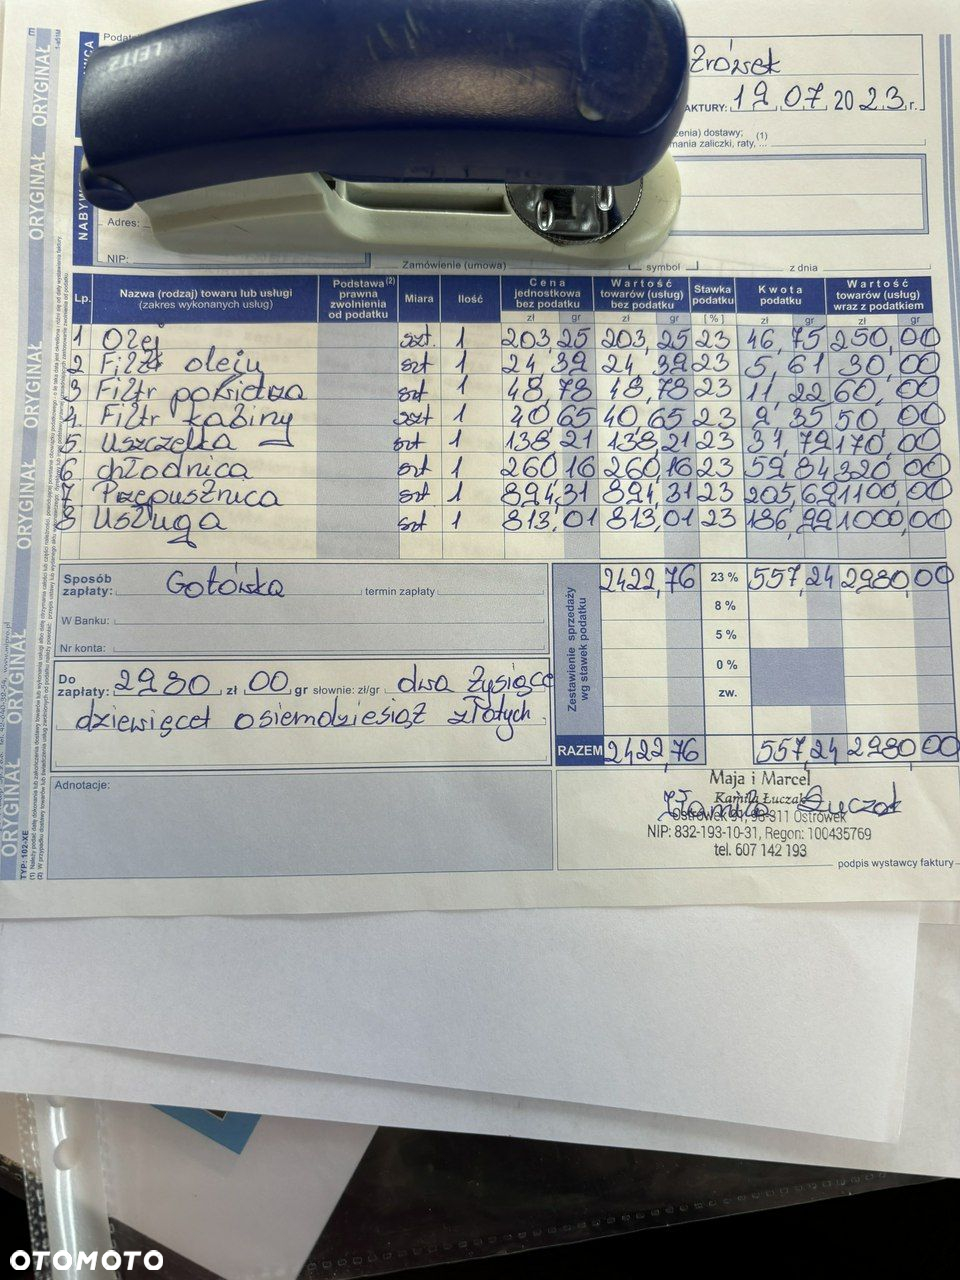 LEITZ
Zrówek
AKTURY: 19.07.2023 r.
zenia) dostawy; (1)
mania zaliczki, raty, ...
NABYW
Adres:
NIP:
Zamówienie (umowa) symbol z dnia
Lp. Nazwa (rodzaj) towaru lub usługi (zakres wykonanych usług) Podstawa (2) prawna zwolnienia od podatku Miara Ilość Cena jednostkowa bez podatku Wartość towarów (usług) bez podatku Stawka podatku Kwota podatku Wartość towarów (usług) wraz z podatkiem
zł gr zł gr [%] zł gr zł gr
1 Olej szt. 1 203,25 203,25 23 46,75 250,00
2 Filtr oleju szt 1 24,39 24,39 23 5,61 30,00
3 Filtr powidza szt 1 48,78 48,78 23 11,22 60,00
4. Filtr kabiny szt 1 40,65 40,65 23 9,35 50,00
5. Uszczelka szt 1 138,21 138,21 23 31,79 170,00
6 chłodnica szt 1 260,16 260,16 23 59,84 320,00
7 Przepustnica szt 1 894,31 894,31 23 205,69 1100,00
8 Usługa szt 1 813,01 813,01 23 186,99 1000,00
Sposób zapłaty: Gotówka termin zapłaty
W Banku:
Nr konta:
Zestawienie sprzedaży wg stawek podatku
2422,76 23 % 557,24 2980,00
8 %
5 %
0 %
zw.
Do zapłaty: 2980 zł 00 gr słownie: zł/gr dwa tysiące
dziewięćet osiemdziesiąt złotych
RAZEM 2422,76 557,24 2980,00
Adnotacje:
Maja i Marcel
Kamila Łuczak
Kamila Łuczak
Ostrówek 91, 98-311 Ostrówek
NIP: 832-193-10-31, Regon: 100435769
tel. 607 142 193
podpis wystawcy faktury
ORYGINAŁ
ORYGINAŁ
ORYGINAŁ
ORYGINAŁ
ORYGINAŁ
ORYGINAŁ
ORYGINAŁ
TYP: 102-XE
OTOMOTO